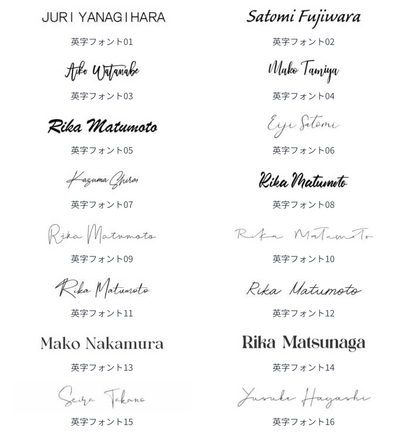 JURI YANAGIHARA
Satomi Fujiwara
英字フォント01
英字フォント02
Aiko Watanabe
Mako Tamiya
英字フォント03
英字フォント04
Rika Matumoto
Eiji Satomi
英字フォント05
英字フォント06
Kazuma Shirai
Rika Matumoto
英字フォント07
英字フォント08
Rika Matumoto
Rika Matumoto
英字フォント09
英字フォント10
Rika Matumoto
Rika Matumoto
英字フォント11
英字フォント12
Mako Nakamura
Rika Matsunaga
英字フォント13
英字フォント14
Seira Takano
Yusuke Hayashi
英字フォント15
英字フォント16